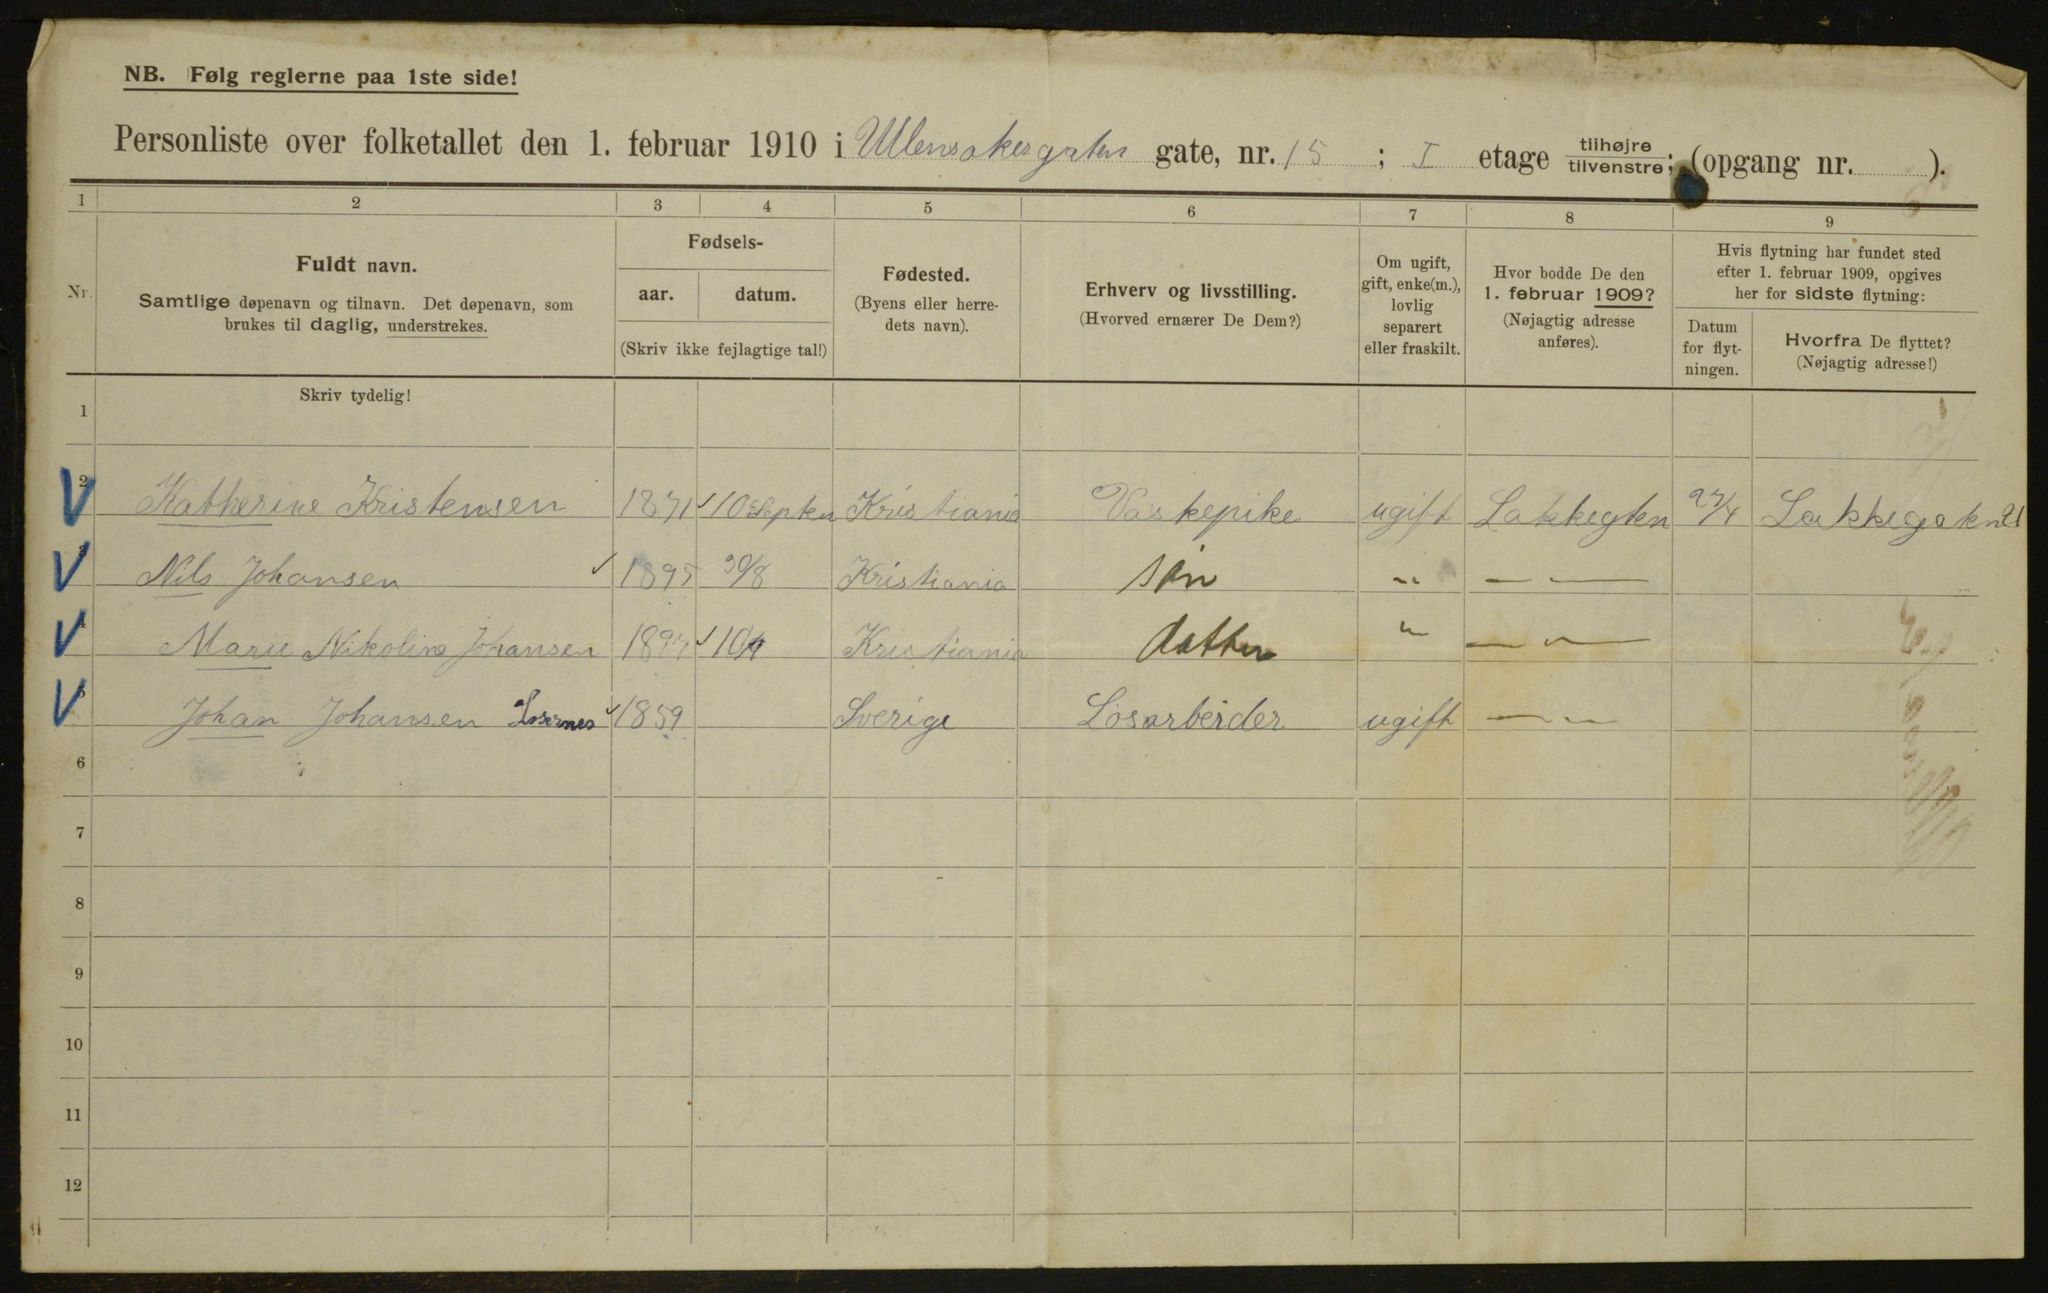 NB. Følg reglerne paa 1ste side!
Personliste over folketallet den 1. februar 1910 i Ullensakergaten gate, nr. 15 ; I etage tilhøjre tilvenstre; (opgang nr. ).
1 2 3 4 5 6 7 8 9
Nr.
Fuldt navn.
Samtlige døpenavn og tilnavn. Det døpenavn, som
brukes til daglig, understrekes.
Fødsels-
aar. datum.
(Skriv ikke fejlagtige tal!)
Fødested.
(Byens eller herre-
dets navn).
Erhverv og livsstilling.
(Hvorved ernærer De Dem?)
Om ugift,
gift, enke(m.),
lovlig
separert
eller fraskilt.
Hvor bodde De den
1. februar 1909?
(Nøjagtig adresse
anføres).
Hvis flytning har fundet sted
efter 1. februar 1909, opgives
her for sidste flytning:
Datum
for flyt-
ningen.
Hvorfra De flyttet?
(Nøjagtig adresse!)
Skriv tydelig!
1
2 Katherine Kristensen 1871 10 Septen Kristiania Vaskepike ugift Lakkegten 27/4 Lakkegaten 21
3 Nils Johansen 1895 30/8 Kristiania søn " — " —
4 Marie Nikoline Johansen 1897 10/9 Kristiania datter " — " —
5 Johan Johansen 1859 Sverige Løsarbeider ugift — " —
6
7
8
9
10
11
12